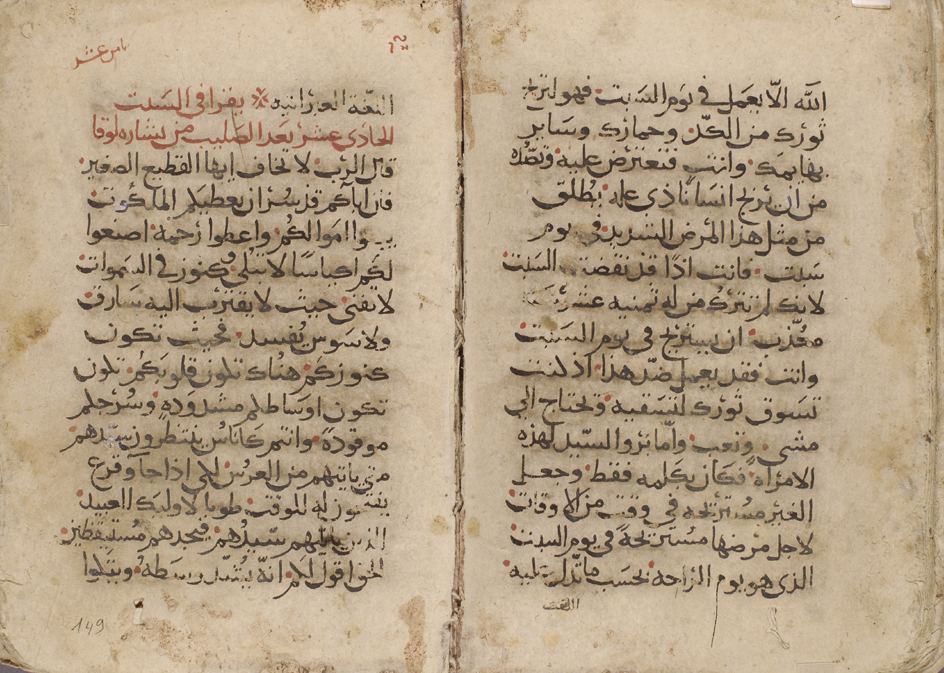 الله الا يعمل في يوم السبت فهو لتريح
ثورك من الكد وحمارك وساير
بهايمك وانت فتعترض عليه وتصده
من ان يريح انسانا ذى عله يطلق
من مثل هذا المرض الشديد في يوم
سبت فانت اذا قد نقضت السبت
لانك لم تترك من له ثمنيه عشر
معذب ان يستريح في يوم السبت
وانت فقد يعمل ضد هذا اذ كنت
تسوق ثورك لتسقيه وتحتاج الي
مشي وتعب واما بروا السيد لهذه
الامراه فكان بكلمه فقط وجعل
الغير مستريحه في وقت من الاوقات
لاجل مرضها مستريحة في يوم السبت
الذى هو يوم الراحه بحسب ما تدل عليه
اللغة
ثامن عشر
اللغة العبرانيه يقرا في السبت
الحادى عشر بعد الصليب من بشاره لوقا
قال الرب لا تخاف ايها القطيع الصغير
فان اباكم قد سر ان يعطيكم الملكوت
اموالكم واعطوا رحمة اصنعوا
لكم اكياسا لا تبلي وكنوز في السموات
لا يفني حيث لا يقترب اليه سارق
ولا سوس يفسد فحيث تكون
كنوزكم هناك تكون قلوبكم تكون
تكون اوساطكم مشدوده وسرجكم
موقودة وانتم كاناس ينتظرون سيدهم
متي ياتيهم من العرس لكي اذا جا وقرع
يفتحون له للوقت طوبا لاوليك العبيد
الذين ياتيهم سيدهم فيجدهم مستيقظين
الحق اقول لكم انه يشد وسطه ويتكوا
149